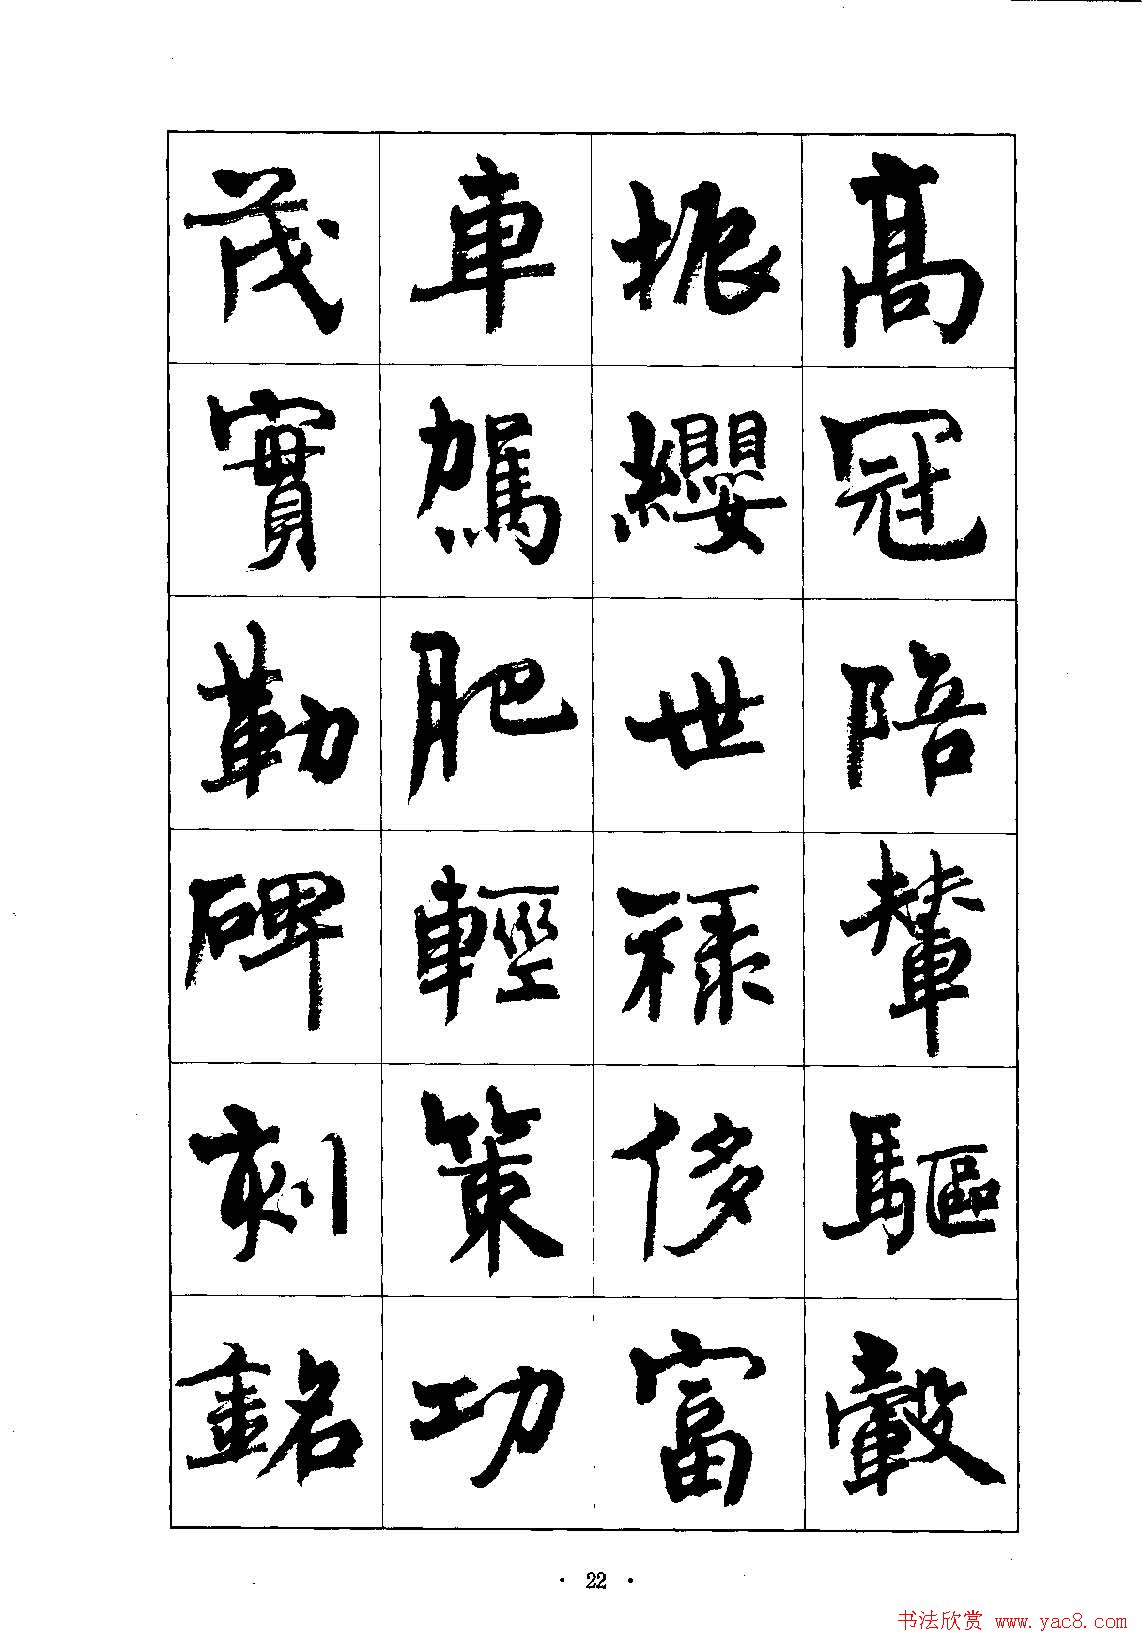 高冠陪輦驅轂
振纓世祿侈富
車駕肥輕策功
茂實勒碑刻銘
· 22 ·
书法欣赏 www.yac8.com